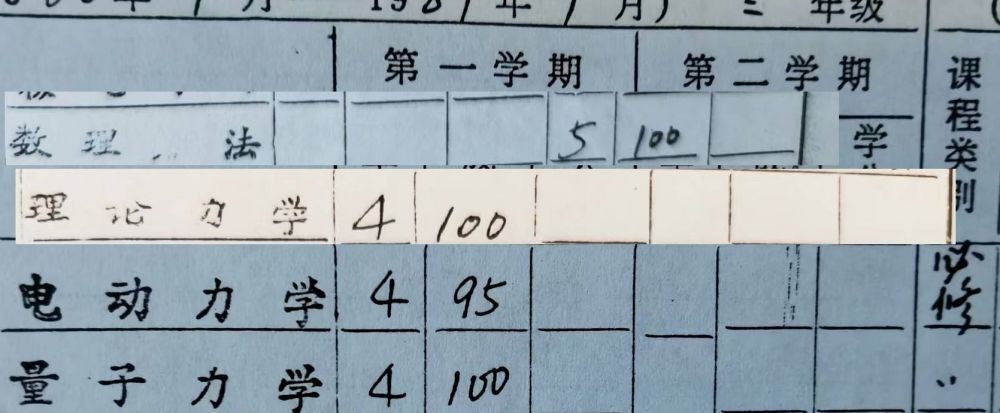 年 月 1987年7月) 三 年级
第一学期 第二学期 课程类别
数理 法 5 100
学
理论力学 4 100
电动力学 4 95 必修
量子力学 4 100 〃